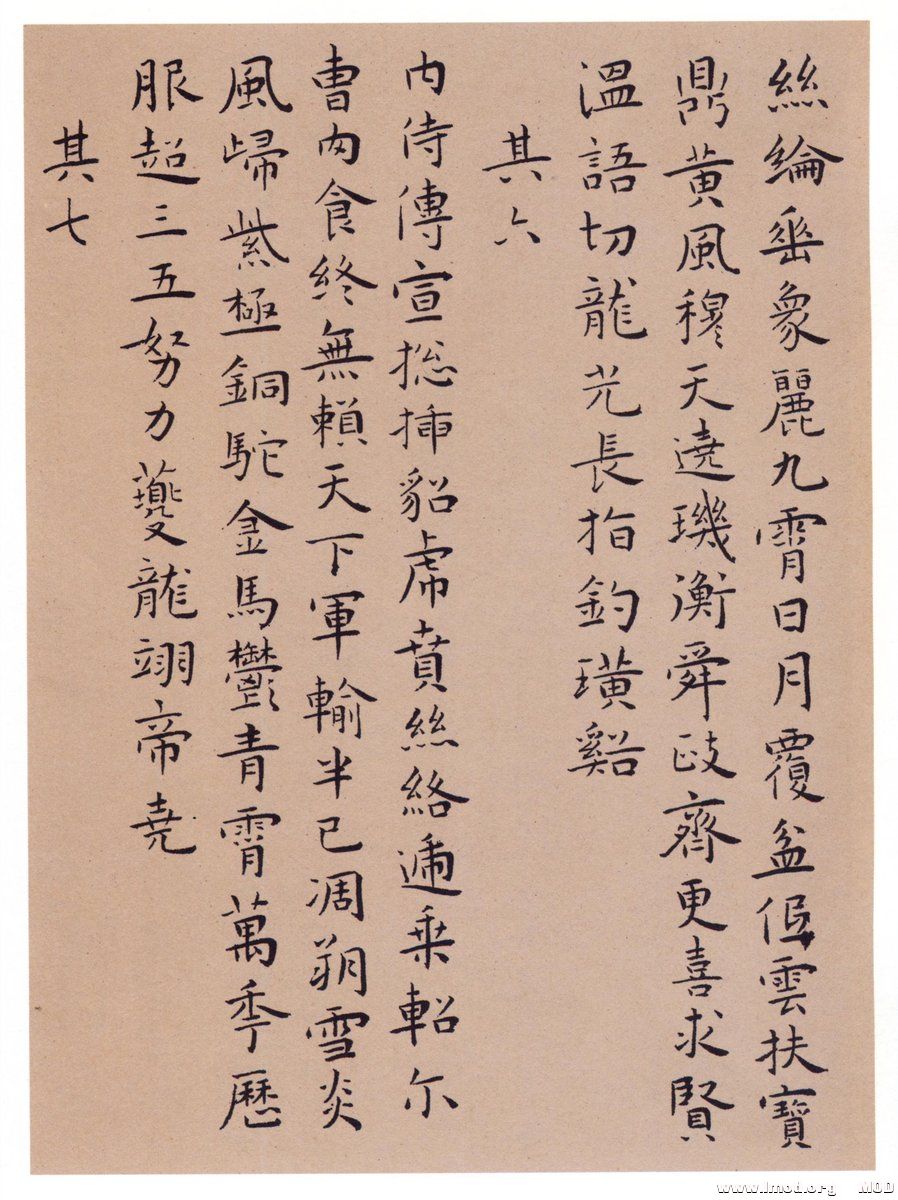 絲綸垂象麗九霄日月覆盆低雲扶寶
鼎黃風穆天遶璣衡舜歧齊更喜求賢
溫語切龍光長指釣璜谿
其六
內侍傳宣捴揷貂虎賁絲絡遞乘軺尔
曹肉食終無賴天下軍輸半已凋朔雪炎
風歸紫極銅駝金馬鬱青霄萬秊歷
服超三五努力夔龍翊帝堯
其七
www.lmod.org MOD